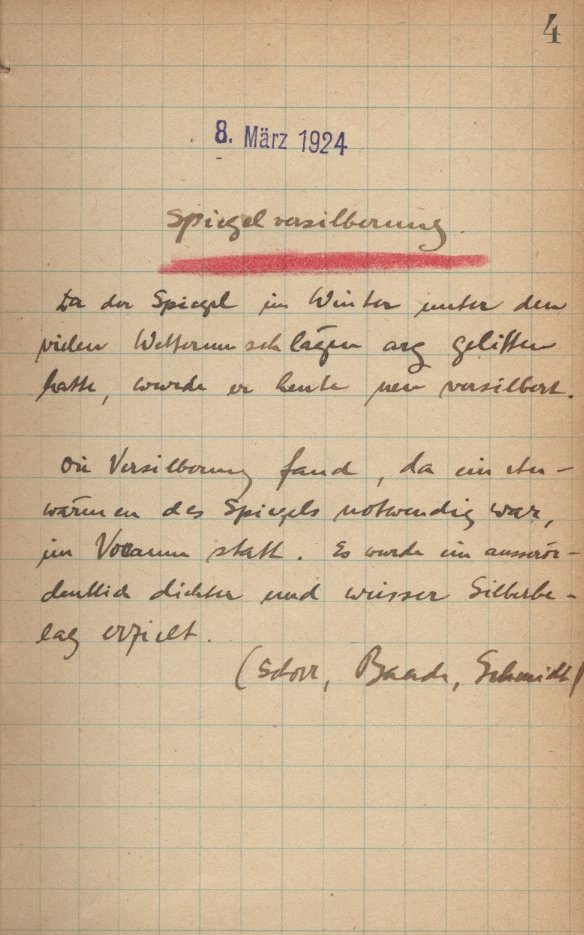 4
8. März 1924
Spiegelversilberung.
Da der Spiegel im Winter unter den
vielen Wetterumschlägen arg gelitten
hatte, wurde er heute neu versilbert.
Die Versilberung fand, da ein An-
wärmen des Spiegels notwendig war,
im Voraum statt. Es wurde ein ausseror-
dentlich dichter und weisser Silberbe-
lag erzielt.
(Storr, Baade, Schmidt)